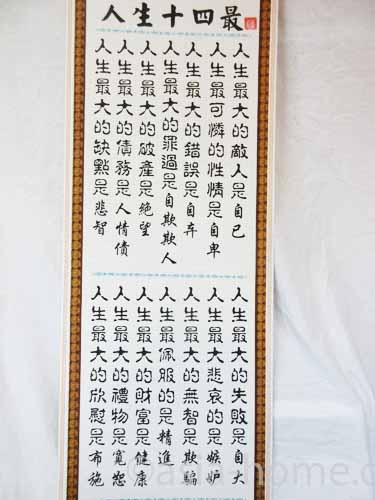 人生十四最
人生最大的敵人是自己
人生最可憐的性情是自卑
人生最大的錯誤是自弃
人生最大的罪過是自欺欺人
人生最大的破產是絕望
人生最大的債務是人情债
人生最大的缺點是悲智
人生最大的失敗是自大
人生最大悲哀的是嫉妒
人生最大的無智是欺騙
人生最佩服的是精進
人生最大的財富是健康
人生最大的禮物是寬恕
人生最大的欣慰是布施